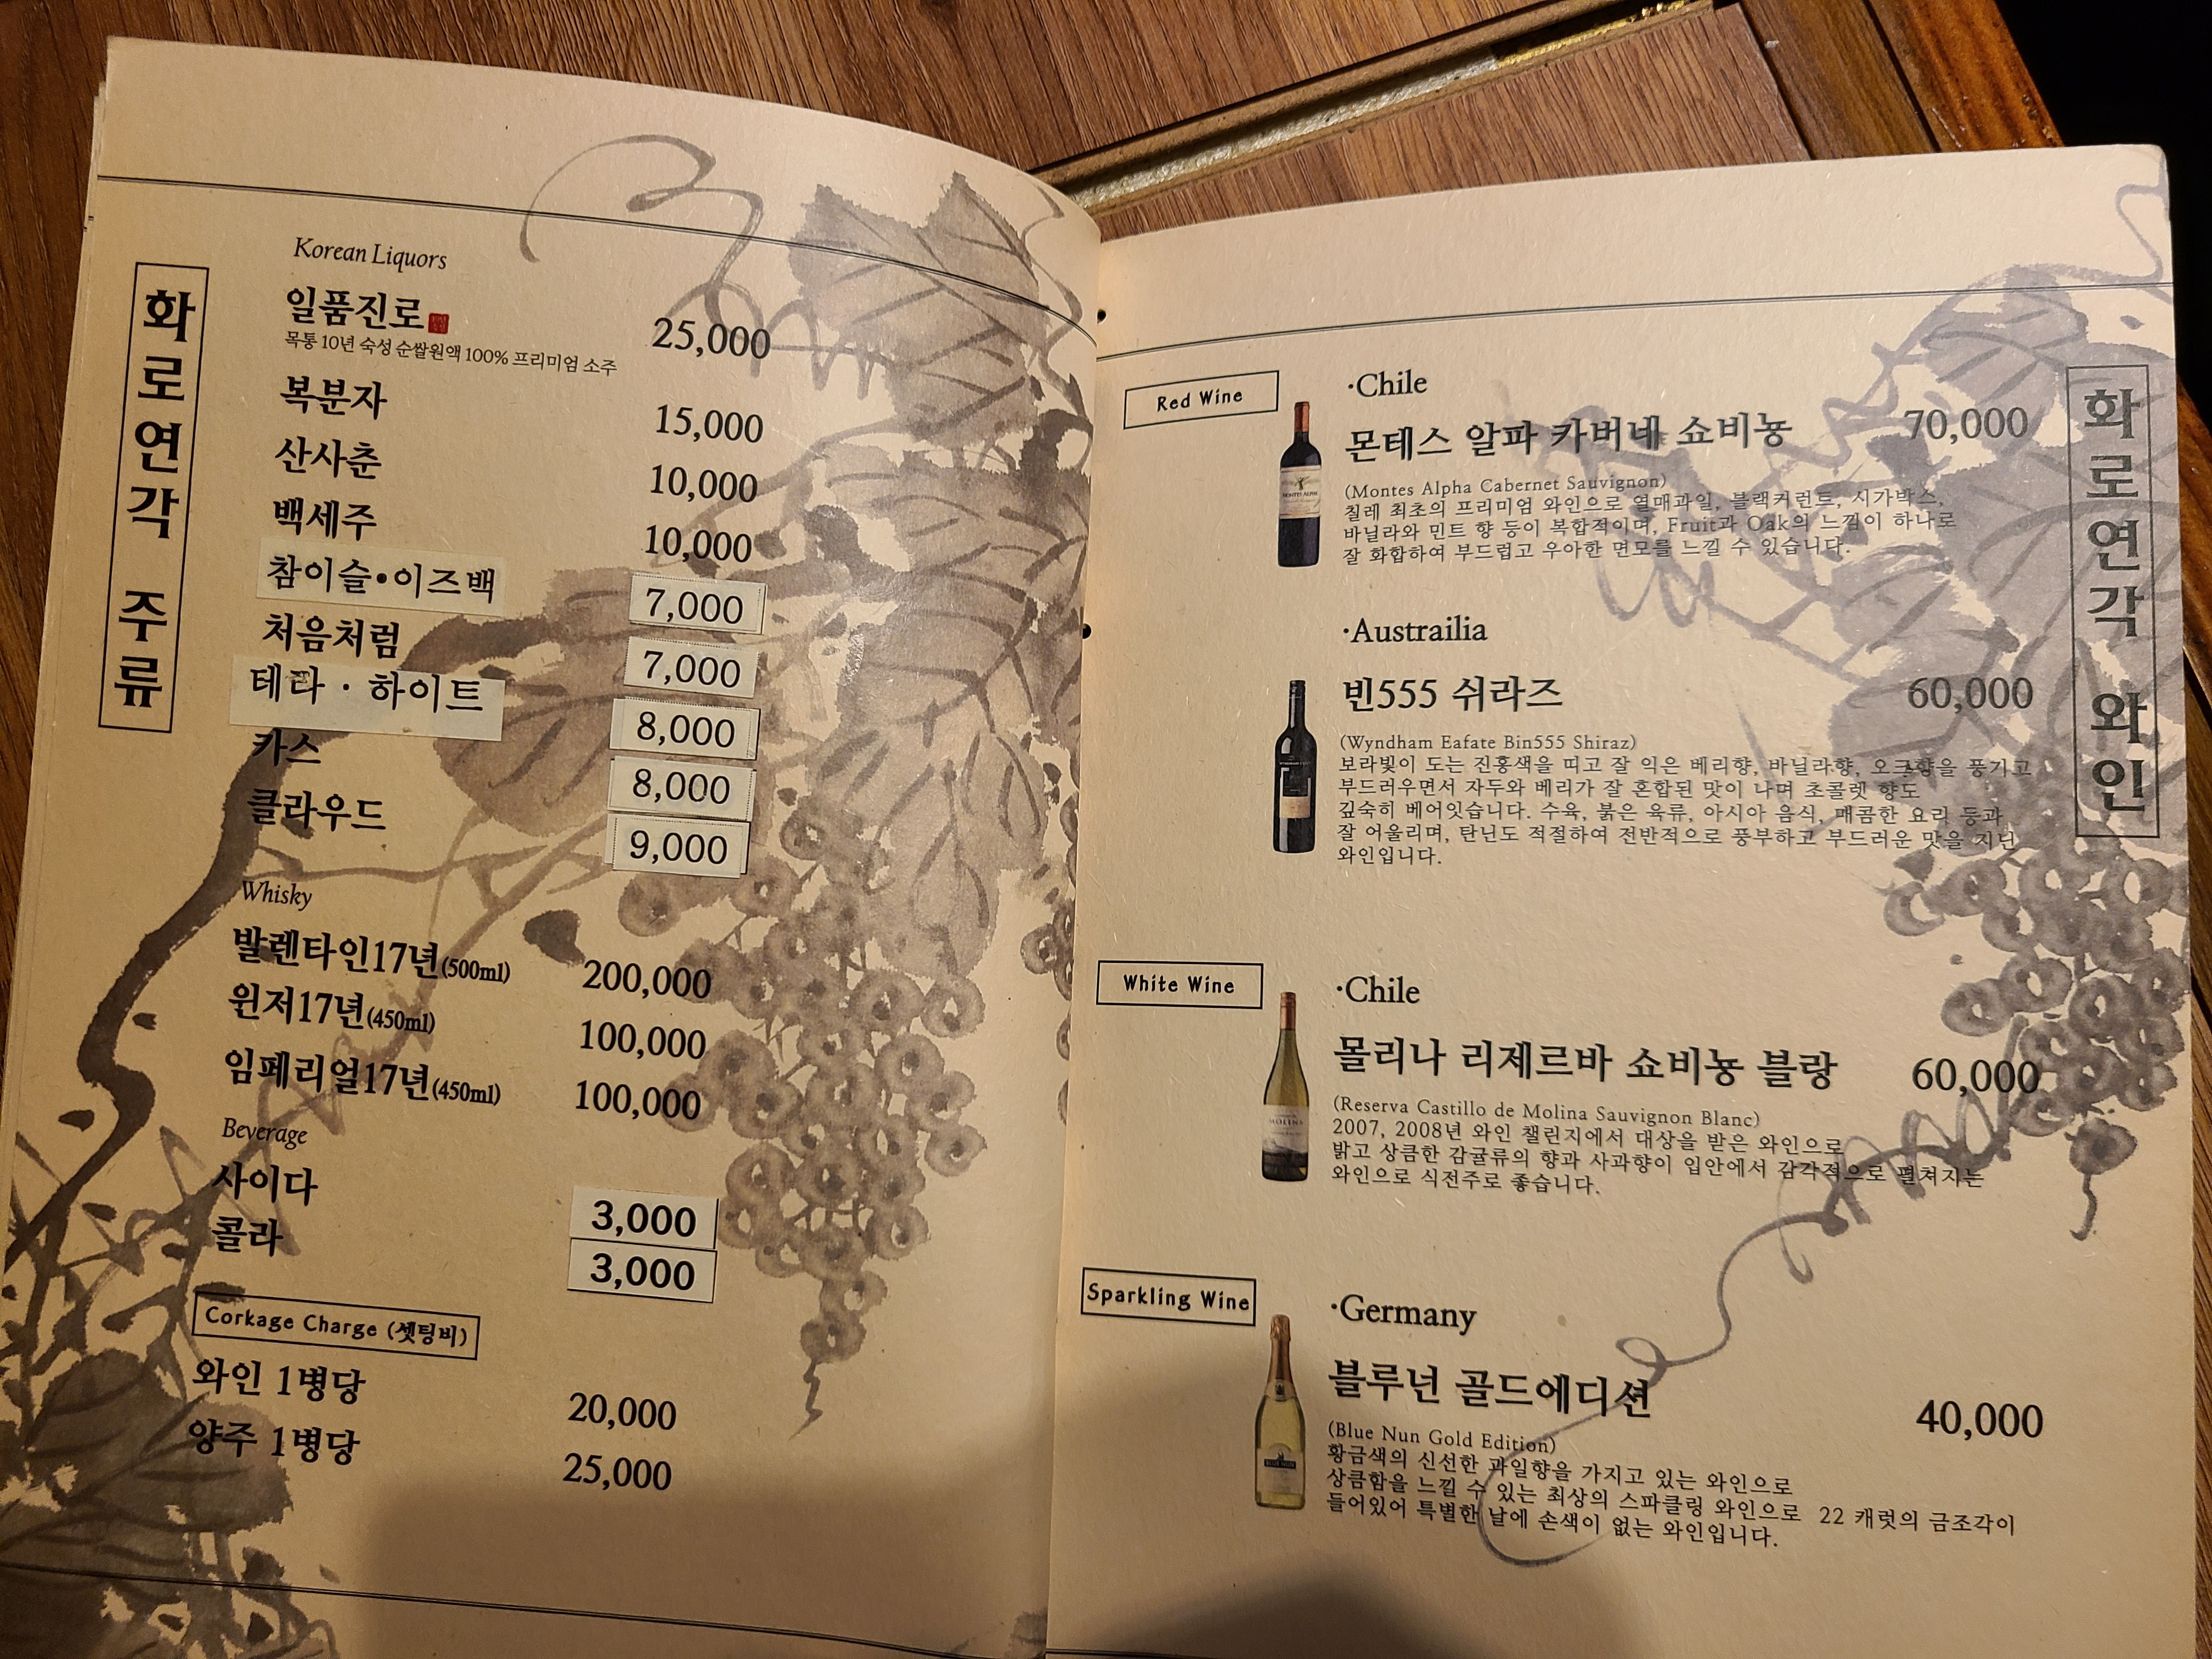 화로연각 주류
Korean Liquors
일품진로 25,000
목통 10년 숙성 순쌀원액 100% 프리미엄 소주
복분자 15,000
산사춘 10,000
백세주 10,000
참이슬•이즈백 7,000
처음처럼 7,000
테라 · 하이트 8,000
카스 8,000
클라우드 9,000
Whisky
발렌타인17년(500ml) 200,000
윈저17년(450ml) 100,000
임페리얼17년(450ml) 100,000
Beverage
사이다 3,000
콜라 3,000
Corkage Charge (셋팅비)
와인 1병당 20,000
양주 1병당 25,000
화로연각 와인
Red Wine
·Chile
몬테스 알파 카버네 쇼비뇽 70,000
(Montes Alpha Cabernet Sauvignon)
칠레 최초의 프리미엄 와인으로 열매과일, 블랙커런트, 시가박스,
바닐라와 민트 향 등이 복합적이며, Fruit과 Oak의 느낌이 하나로
잘 화합하여 부드럽고 우아한 면모를 느낄 수 있습니다.
·Austrailia
빈555 쉬라즈 60,000
(Wyndham Eafate Bin555 Shiraz)
보라빛이 도는 진홍색을 띠고 잘 익은 베리향, 바닐라향, 오크향을 풍기고
부드러우면서 자두와 베리가 잘 혼합된 맛이 나며 초콜렛 향도
깊숙히 베어잇습니다. 수육, 붉은 육류, 아시아 음식, 매콤한 요리 등과
잘 어울리며, 탄닌도 적절하여 전반적으로 풍부하고 부드러운 맛을 지닌
와인입니다.
White Wine
·Chile
몰리나 리제르바 쇼비뇽 블랑 60,000
(Reserva Castillo de Molina Sauvignon Blanc)
2007, 2008년 와인 챌린지에서 대상을 받은 와인으로
밝고 상큼한 감귤류의 향과 사과향이 입안에서 감각적으로 펼쳐지는
와인으로 식전주로 좋습니다.
Sparkling Wine
·Germany
블루넌 골드에디션 40,000
(Blue Nun Gold Edition)
황금색의 신선한 과일향을 가지고 있는 와인으로
상큼함을 느낄 수 있는 최상의 스파클링 와인으로 22 캐럿의 금조각이
들어있어 특별한 날에 손색이 없는 와인입니다.